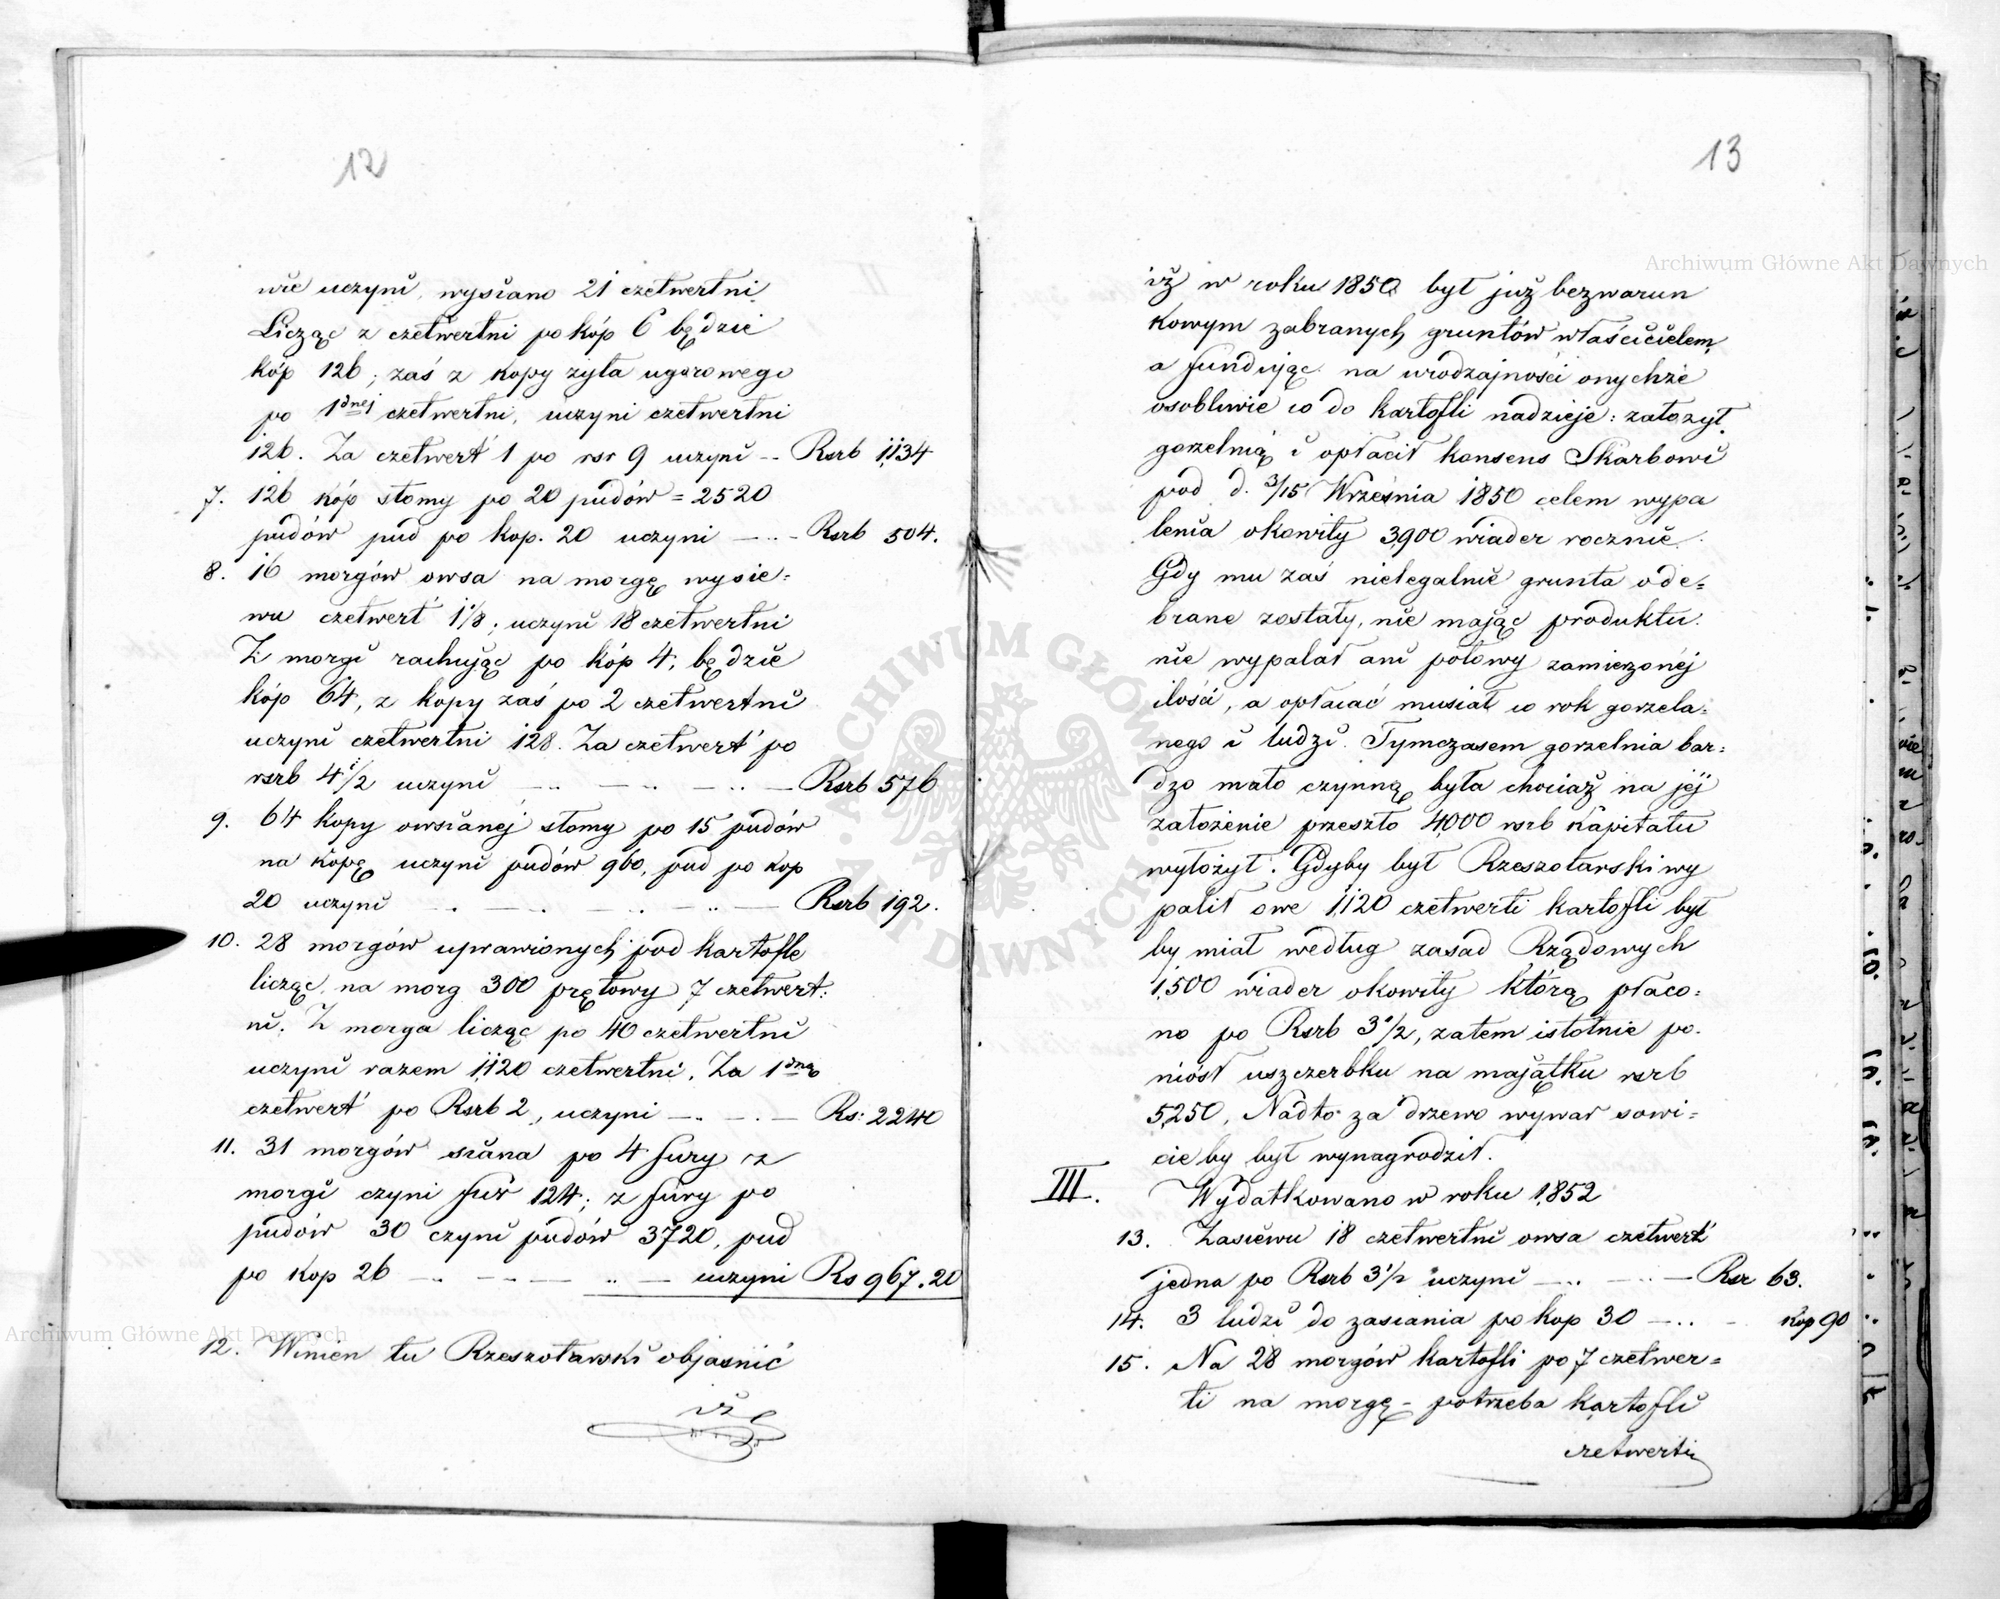 12
wie uczyni wysiano 21 czetwertni
Licząc z czetwertni po kóp 6 będzie
kóp 126; zaś z kopy żyta ugorowego
po 1dnej czetwertni, uczyni czetwertni
126. Za czetwert' 1 po rsr 9 uczyni -- Rsrb 1,134
7. 126 kóp słomy po 20 pudów = 2520
pudów pud po kop. 20 uczyni — . . - Rsrb 504.
8. 16 morgów owsa na morgę wysie=
wu czetwert' 1 1/8; uczyni 18 czetwertni
Z morgi rachując po kóp 4, będzie
kóp 64, z kopy zaś po 2 czetwertni
uczyni czetwertni 128. Za czetwert' po
rsrb 4 1/2 uczyni — — — Rsrb 576
9. 64 kopy owsianej słomy po 15 pudów
na kopę uczyni pudów 960, pud po kop
20 uczyni — — — Rsrb 192.
10. 28 morgów uprawionych pod kartofle
licząc, na morg 300 prętowy 7 czetwert:
ni. Z morga licząc po 40 czetwertni
uczyni razem 1,120 czetwertni. Za 1dną
czetwert' po Rsrb 2, uczyni — . — . — Rs: 2240
11. 31 morgów siana po 4 fury z
morgi czyni fur 124; z fury po
pudów 30 czyni pudów 3720, pud
po kop 26 — — — uczyni Rs 967.20
12. Winien tu Rzeszotarski objaśnić
iż
13
iż w roku 1850 był już bezwarun
kowym zabranych gruntów właścicielem,
a fundując na urodzajności onychże
osobliwie co do kartofli nadzieje: założył
gorzelnią i opłacił konsens Skarbowi
pod d. 3/15 Września 1850 celem wypa
lenia okowity 3,900 wiader rocznie.
Gdy mu zaś nielegalnie grunta ode=
brane zostały, nie mając produktu
nie wypalał ani połowy zamierzonej
ilości, a opłacać musiał co rok gorzela=
nego i ludzi. Tymczasem gorzelnia bar=
dzo mało czynną była chociaż na jej
założenie przeszło 4000 rsrb kapitału
wyłożył. Gdyby był Rzeszotarski wy
palił owe 1,120 czetwerti kartofli był
by miał według zasad Rządowych
1,500 wiader okowity którą płaco=
no po Rsrb 3 1/2, zatem istotnie po=
niósł uszczerbku na majątku rsrb
5,250. Nadto za drzewo wywar sowi=
cie by był wynagrodził.
III. Wydatkowano w roku 1,852
13. Zasiewu 18 czetwertni owsa czetwert'
jedna po Rsrb 3 1/2 uczyni — . . — Rsr 63.
14. 3 ludzi do zasiania po kop 30 — . . - kop 90
15. Na 28 morgów kartofli po 7 czetwer=
ti na morgę - potrzeba kartofli
czetwerti
Archiwum Główne Akt Dawnych
Archiwum Główne Akt Dawnych
ARCHIWUM GŁÓWNE AKT DAWNYCH